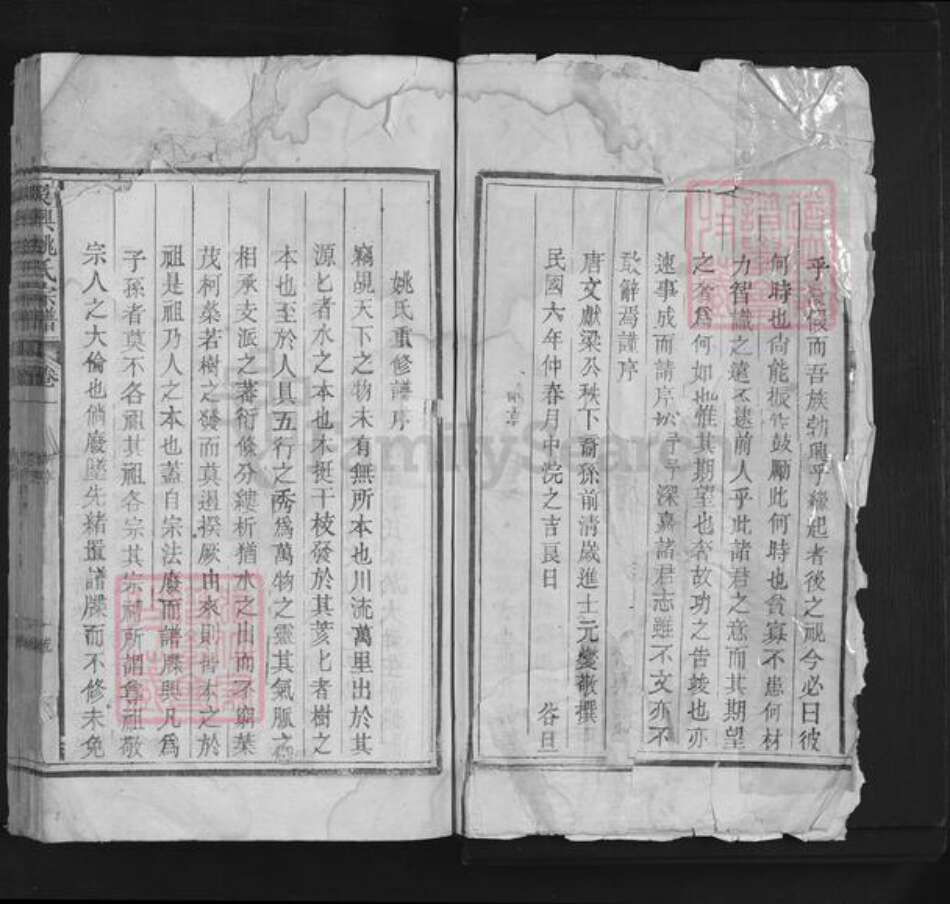 乎 假而吾族勃興乎繼起者後之視今必曰彼
何時也尙能振作鼓勵此何時也貧寡不患何材
力智識之遠不逮前人乎此諸君之意而其期望
之奢爲何如也惟其期望也奢故功之告竣也亦
速事成而請序於 深嘉諸君志雖不文亦不
敢辭焉謹序
唐文獻梁公秩下裔孫前清歲進士元燮敬撰
民國六年仲春月中浣之吉良日 谷旦
姚氏重修譜序
竊覘天下之物未有無所本也川流萬里出於其
源匕者水之本也木挺千枝發於其荄匕者樹之
本也至於人具五行之秀爲萬物之靈其氣脈之
相承支派之蕃衍條分縷析猶水之出而不窮葉
茂柯榮若樹之發而莫遏揆厥由來則皆本之於
祖是祖乃人之本也蓋自宗法廢而譜牒興凡爲
子孫者莫不各祖其祖各宗其宗 所謂尊祖敬
宗人之大倫也倘廢墜先緒置譜牒而不修未免
興姚氏宗譜 卷
FamilySearch